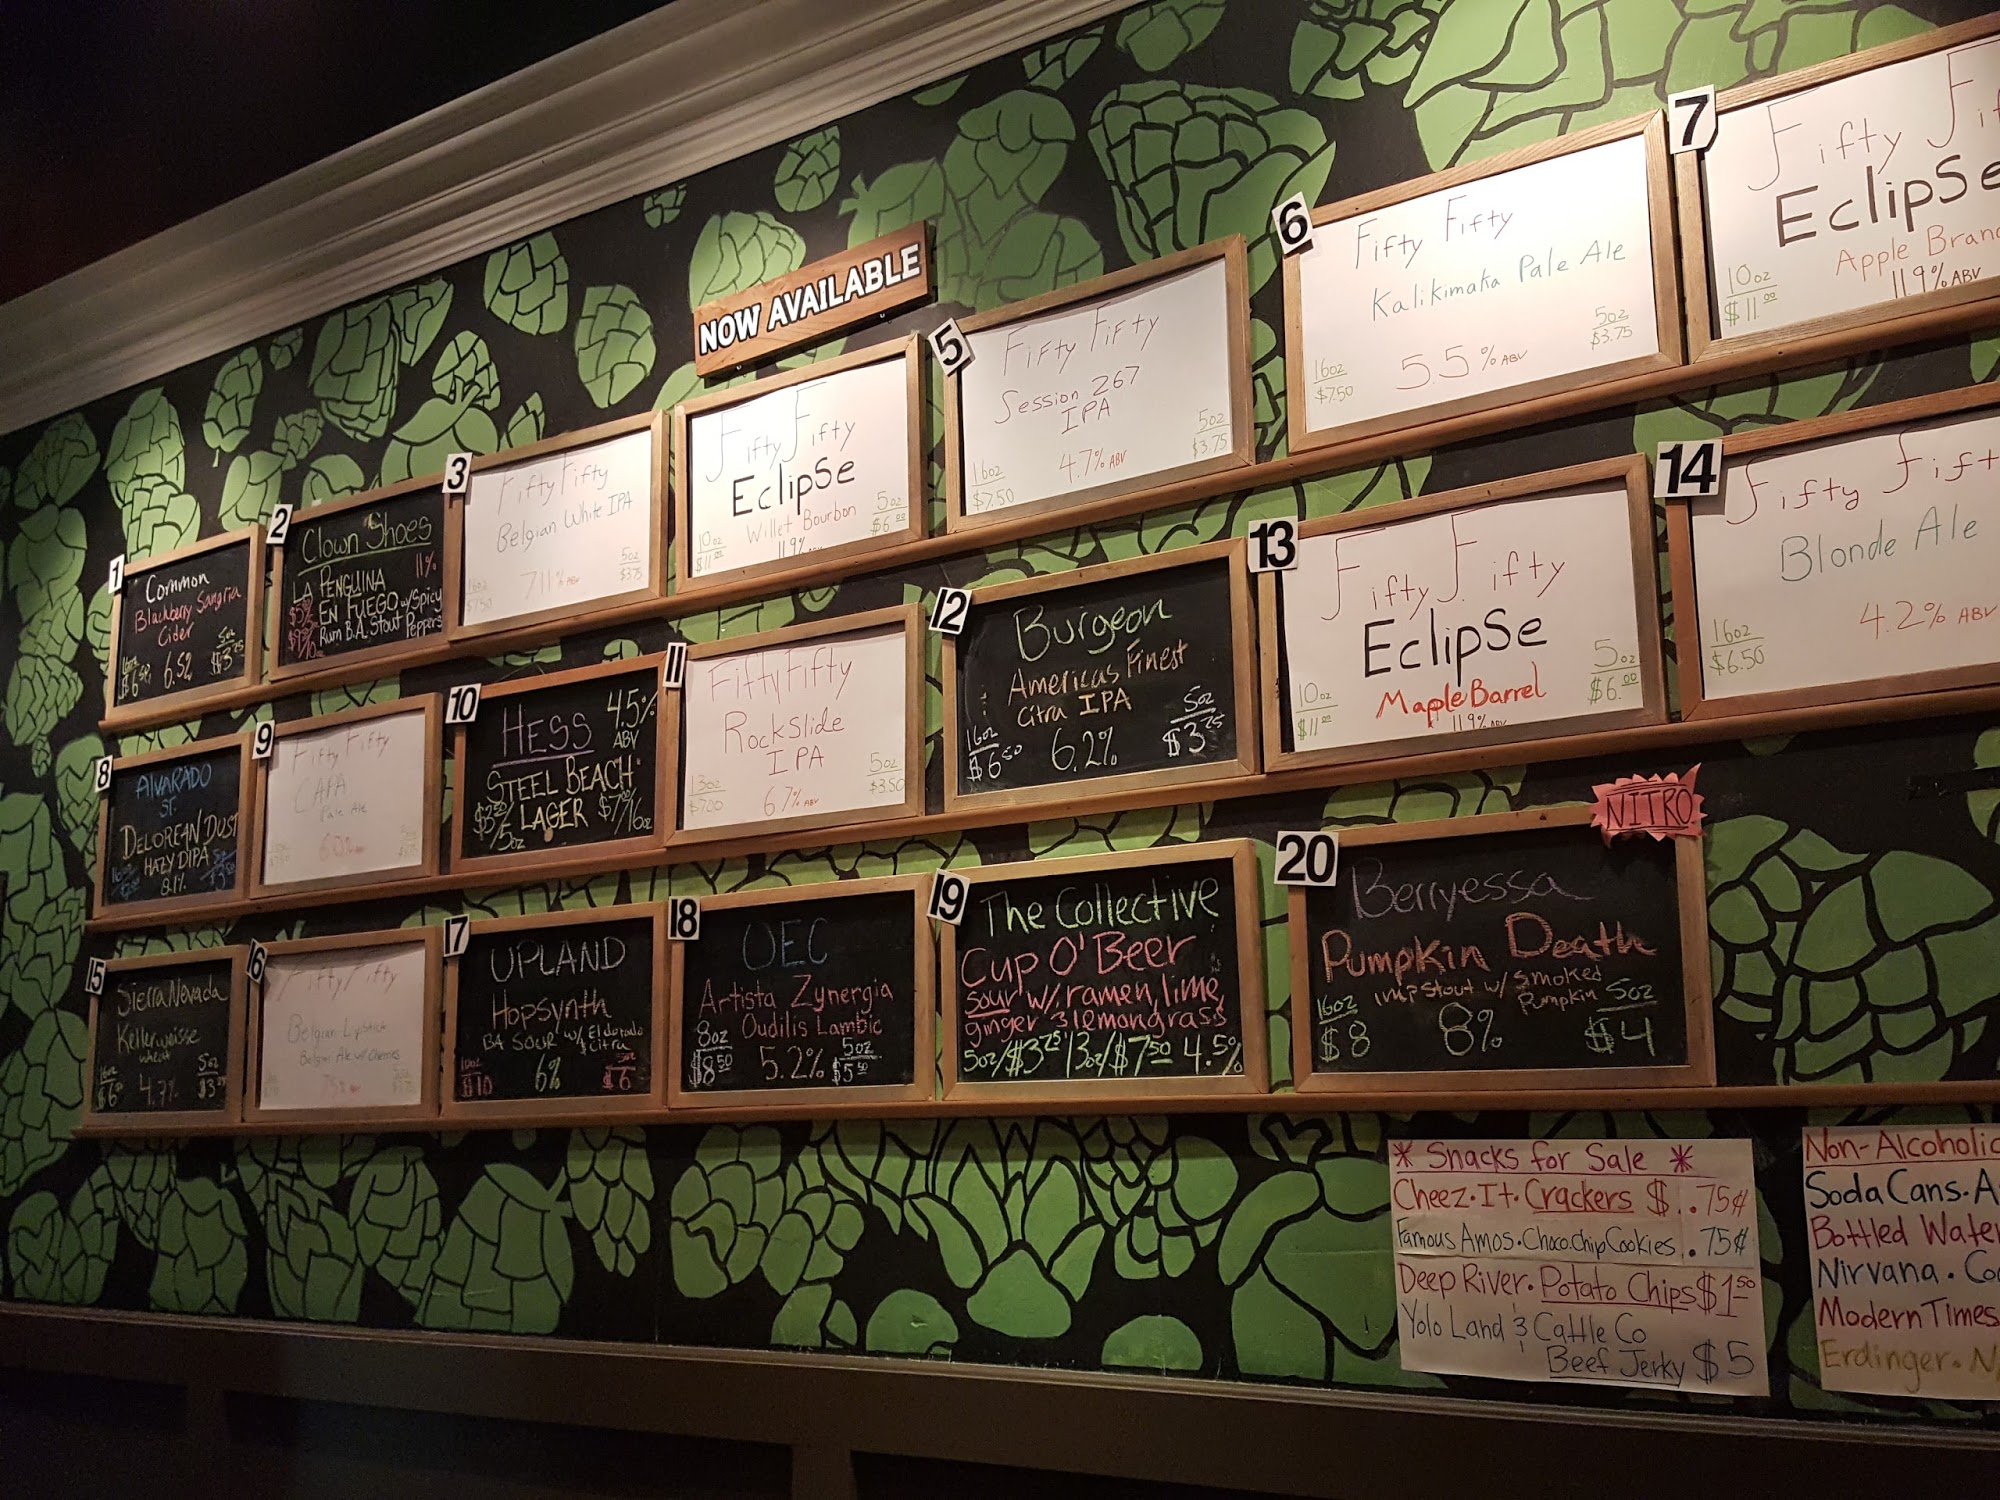 NOW AVAILABLE
1
Common
Blackberry Sangria
Cider
16oz
$6.50
6.5%
5oz
$3.25
2
Clown Shoes
11%
LA PENGUINA
EN FUEGO w/Spicy
Rum B.A. Stout Peppers
3
Fifty Fifty
Belgian White IPA
16oz
$7.50
7.11% ABV
5oz
$3.75
Fifty Fifty
Eclipse
Willet Bourbon
10oz
$11.00
11.9%
5oz
$6.00
5
Fifty Fifty
Session 267
IPA
16oz
$7.50
4.7% ABV
5oz
$3.75
6
Fifty Fifty
Kalikimaka Pale Ale
16oz
$7.50
5.5% ABV
5oz
$3.75
7
Fifty
Eclipse
Apple
10oz
$11.00
11.9% ABV
8
ALVARADO
ST.
DELOREAN DUST
HAZY DIPA
8.1%
9
Fifty Fifty
Pale Ale
10
HESS
4.5%
ABV
STEEL BEACH
LAGER
$3.50/5oz
$7.00/16oz
11
Fifty Fifty
Rockslide
IPA
13oz
$7.00
6.7% ABV
5oz
$3.50
12
Burgeon
Americas Finest
Citra IPA
16oz
$6.50
6.2%
5oz
$3.75
13
Fifty Fifty
Eclipse
Maple Barrel
10oz
$11.00
11.9% ABV
5oz
$6.00
14
Fifty
Blonde Ale
16oz
$6.50
4.2% ABV
15
Sierra Nevada
Kellerweisse
wheat
16oz
4.7%
5oz
16
Fifty Fifty
Belgian Lipstick
Belgian Ale w/ Cherries
17
UPLAND
Hopsynth
BA SOUR w/ El dorado
& Citra
10oz
$10
6%
5oz
$6
18
OEC
Artista Zynergia
Oudilis Lambic
8oz
$8.50
5.2%
5oz
$5.50
19
The Collective
Cup O' Beer
sour w/ ramen, lime,
ginger & lemongrass
5oz/$3.75 13oz/$7.50 4.5%
20
NITRO
Berryessa
Pumpkin Death
imp stout w/ smoked
Pumpkin
16oz
$8
8%
5oz
$4
* Snacks for Sale *
Cheez·It·Crackers $ .75¢
Famous Amos·Choco.chip Cookies .75¢
Deep River·Potato Chips $1.50
Yolo Land & Cattle Co
Beef Jerky $5
Non-Alcoholic
Soda Cans·A
Bottled Water
Nirvana·Co
Modern Times
Erdinger·N